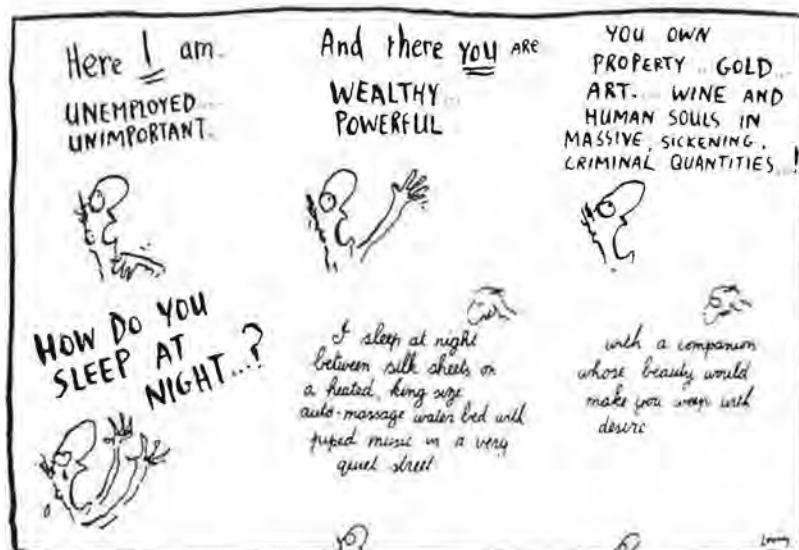 Here I am..
UNEMPLOYED...
UNIMPORTANT..
And there you ARE
WEALTHY...
POWERFUL
YOU OWN
PROPERTY... GOLD...
ART.... WINE AND
HUMAN SOULS IN
MASSIVE, SICKENING,
CRIMINAL QUANTITIES...!
HOW DO YOU
SLEEP AT
NIGHT...?
I sleep at night
between silk sheets on
a heated, king size
auto-massage water bed with
piped music in a very
quiet street
with a companion
whose beauty would
make you weep with
desire